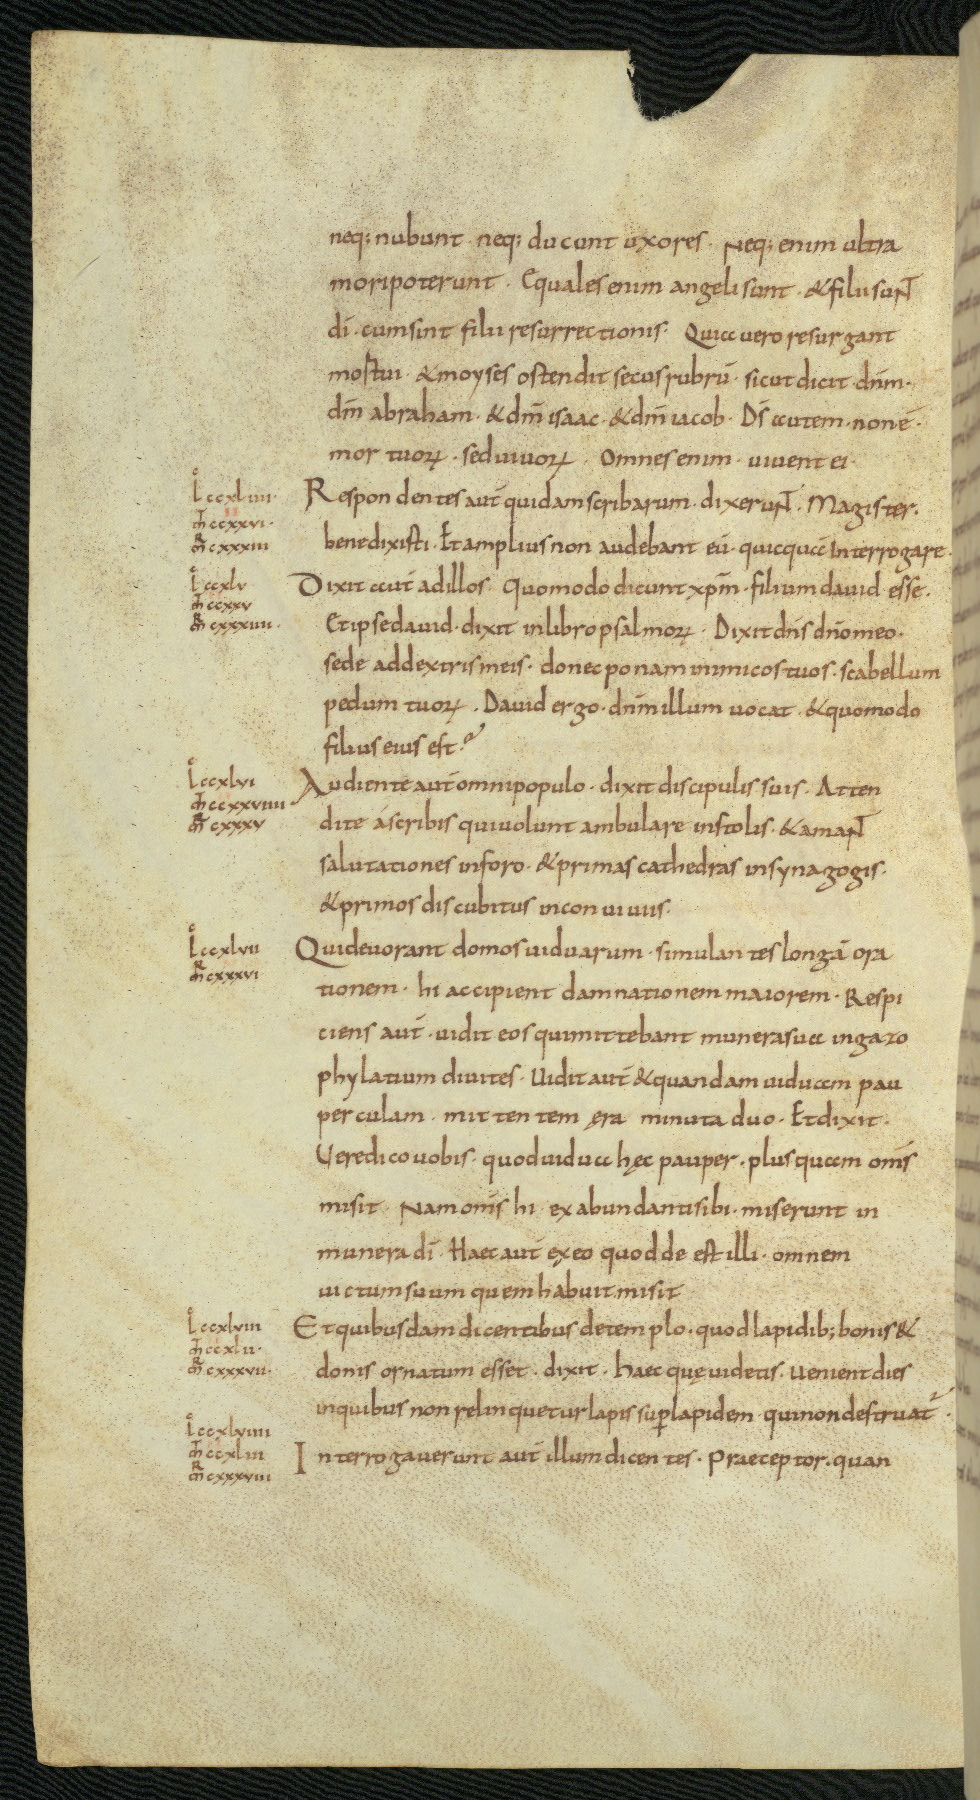 neq; nubunt · neq; ducunt uxores · Neq; enim ultra
mori poterunt · Equales enim angeli sunt · & filii sunt
dī · cum sint filii resurrectionis · Quia uero resurgant
mortui · & moyses ostendit secus rubrū · sicut dicit · dnm̄ ·
dm̄ abraham · & dm̄ isaac · & dm̄ iacob · Ds̄ autem · non ē ·
mortuorꝝ · sed uiuorꝝ · Omnes enim · uiuent ei ·
L ccxliiii · Respondentes aut̄ quidam scribarum · dixerunt · Magister ·
m̄ ccxxvi ·
m̄ cxxxiii benedixisti · Et amplius non audebant eū · quicquā interrogare ·
L ccxlv Dixit aut̄ ad illos · Quomodo dicunt xpm̄ · filium dauid esse ·
m̄ ccxxv
m̄ cxxxiiii · Et ipse dauid · dixit in libro psalmorꝝ · Dixit dn̄s dn̄o meo ·
sede ad dextris meis · donec ponam inimicos tuos · scabellum
pedum tuorꝝ · Dauid ergo · dn̄m illum uocat · & quomodo
filius eius est ·
L ccxlvi Audiente aut̄ omni populo · dixit discipulis suis · Atten
m̄ ccxxviiii ·
m̄ cxxxv dite á scribis qui uolunt ambulare in stolis · & amant
salutationes in foro · & primas cathedras in synagogis ·
& primos discubitus in conuiuiis ·
L ccxlvii Qui deuorant domos uiduarum · simulantes longā ora
m̄ cxxxvi
tionem · hi accipient damnationem maiorem · Respi
ciens aut̄ · uidit eos qui mittebant munera sua in gazo
phylatium diuites · Uidit aut̄ & quandam uiduam pau
perculam · mittentem ęra minuta duo · Et dixit ·
Uere dico uobis · quod uidua hęc pauper · plus quam om̄s
misit · Nam om̄s hi · ex abundanti sibi · miserunt in
munera dī · Haec aut̄ ex eo quod de est illi · omnem
uictum suum quem habuit misit
L ccxlviii Et quibusdam dicentibus de templo · quod lapidib; bonis &
m̄ ccxlii ·
m̄ cxxxvii · donis ornatum esset · dixit · haec quę uidetis · uenient dies
in quibus non relinquetur lapis sup̄ lapidem · qui non destruat̄ ·
L ccxlviiii
m̄ ccxliii Interrogauerunt aut̄ illum dicentes · Praeceptor · quan
m̄ cxxxviii